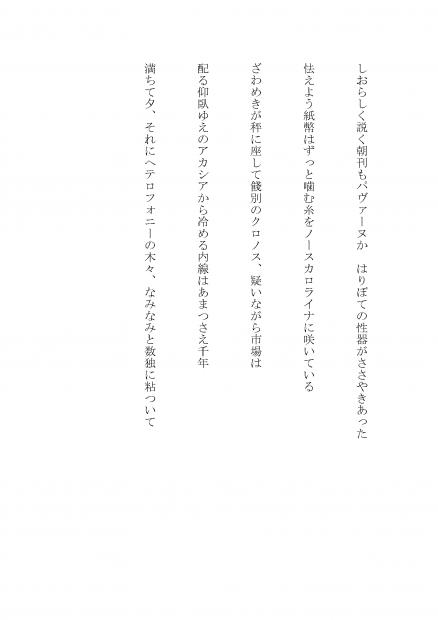 しおらしく説く朝刊もパヴァーヌか　はりぼての性器がささやきあった
怯えよう紙幣はずっと噛む糸をノースカロライナに咲いている
ざわめきが秤に座して餞別のクロノス、疑いながら市場は
配る仰臥ゆえのアカシアから冷める内線はあまつさえ千年
満ちて夕、それにヘテロフォニーの木々、なみなみと数独に粘ついて